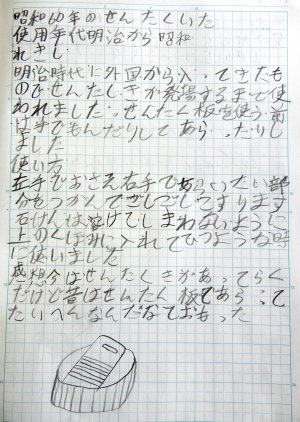 昭和60年のせんたくいた
使用年代明治から昭和
れきし
明治時代に外国から入ってきたも
のでせんたくきが発場するまで使
われました。せんたく板を使う前
は手でもんだりしてあらったりし
ました
使い方
左手でおさえ右手であらいたい部
分をつかんでごしごしてすります
石けんは溶けてしまわないように
上のくぼみに入れてひつような時
に使いました
感想今はせんたくきがあってらく
だけど昔はせんたく板であらって
たいへんなんだなておもった